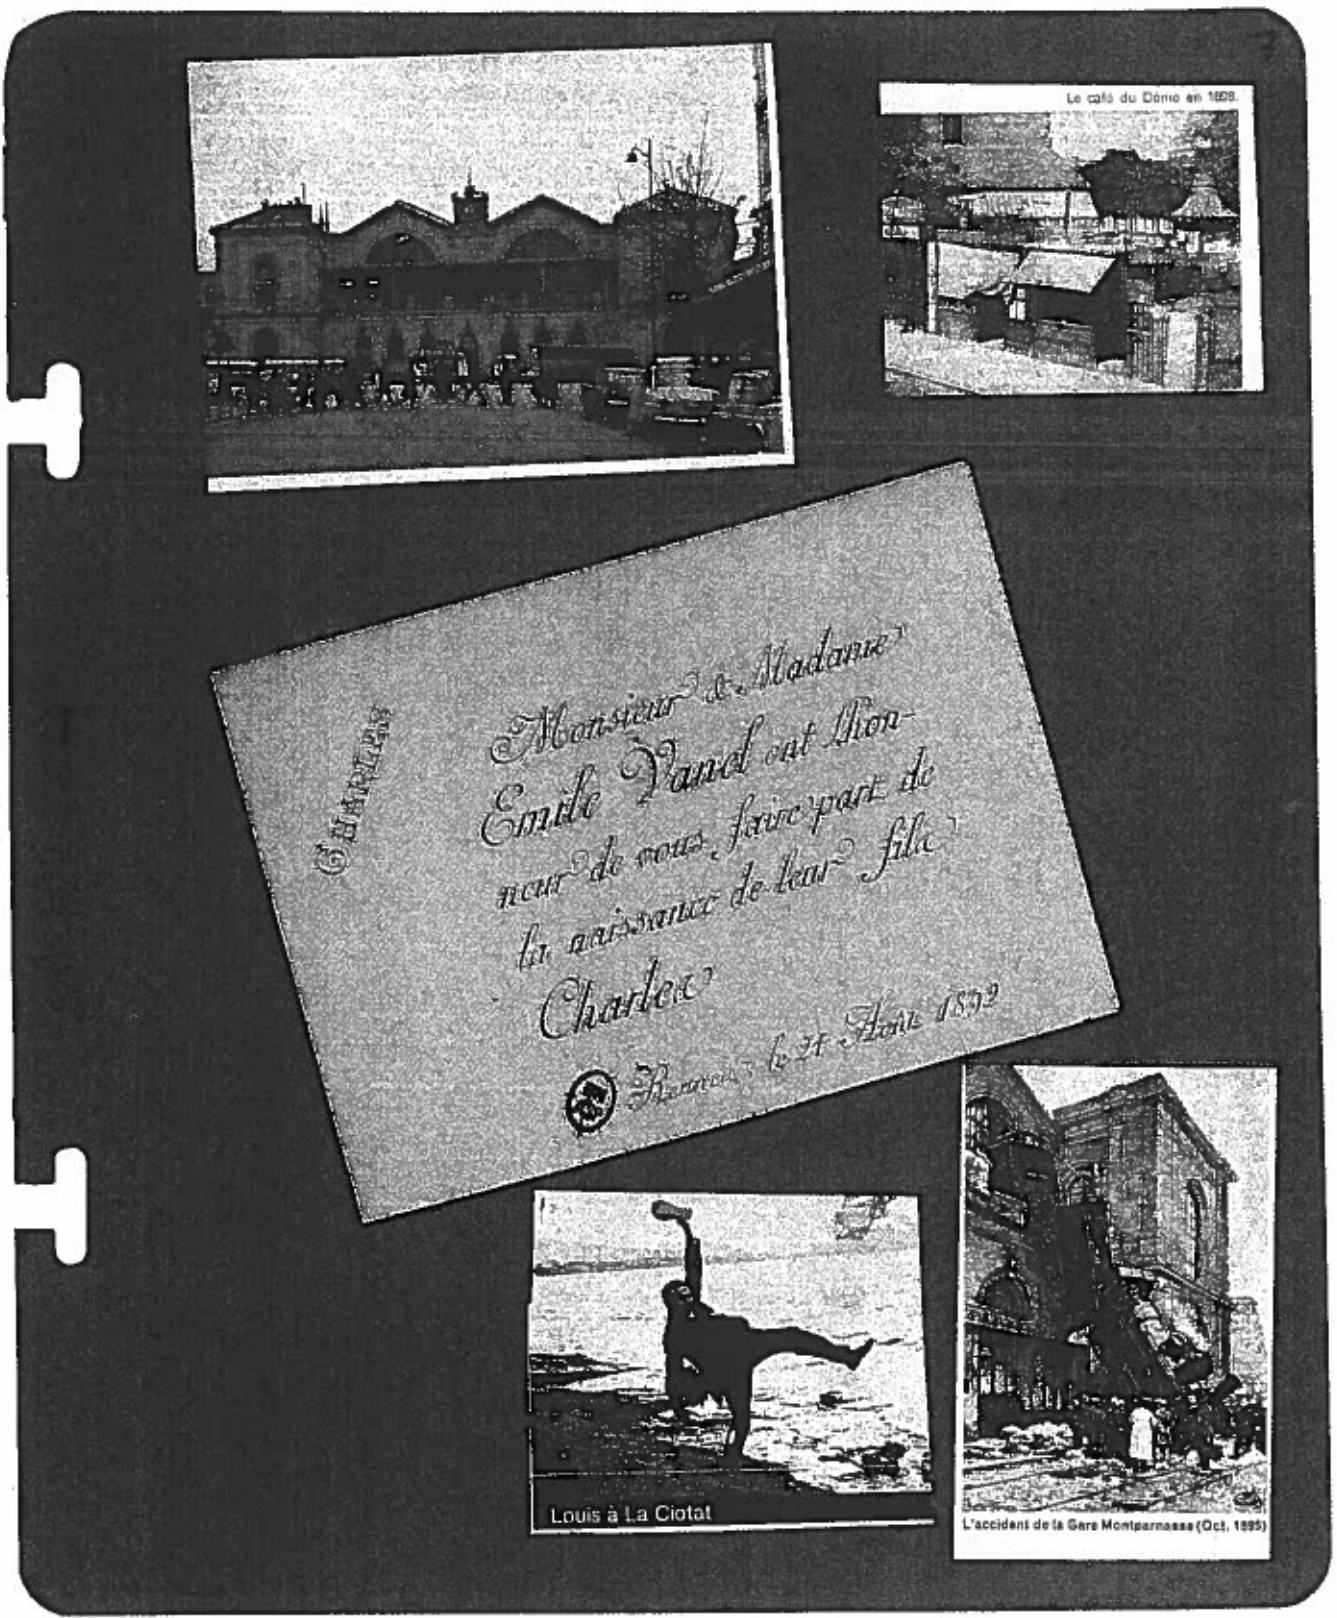 Le café du Dôme en 1898.
CHARLES
Monsieur & Madame
Emile Vanel ont l'hon-
neur de vous faire part de
la naissance de leur fils
Charles
Rennes le 21 Août 1892
Louis à La Ciotat
L'accident de la Gare Montparnasse (Oct. 1895)